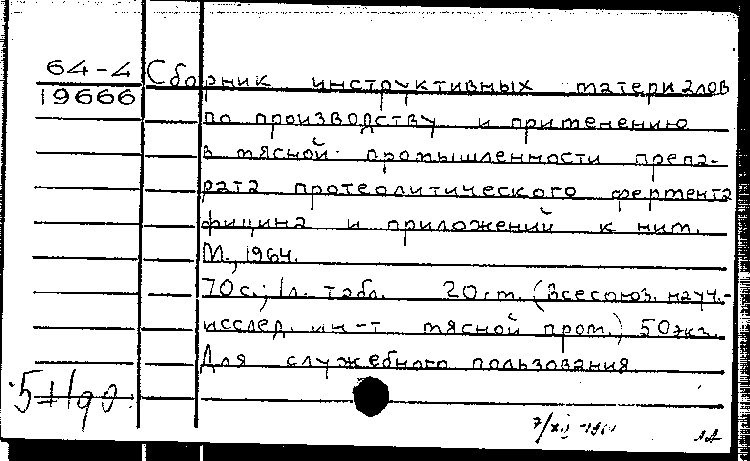 64-4
19666
Сборник инструктивных материалов
по производству и применению
в мясной промышленности препа-
рата протеолитического фермента
фицина и приложений к ним.
М., 1964.
70 с.; 1 л. табл. 20 см. (Всесоюз. науч.-
исслед. ин-т мясной пром.) 50 экз.
Для служебного пользования.